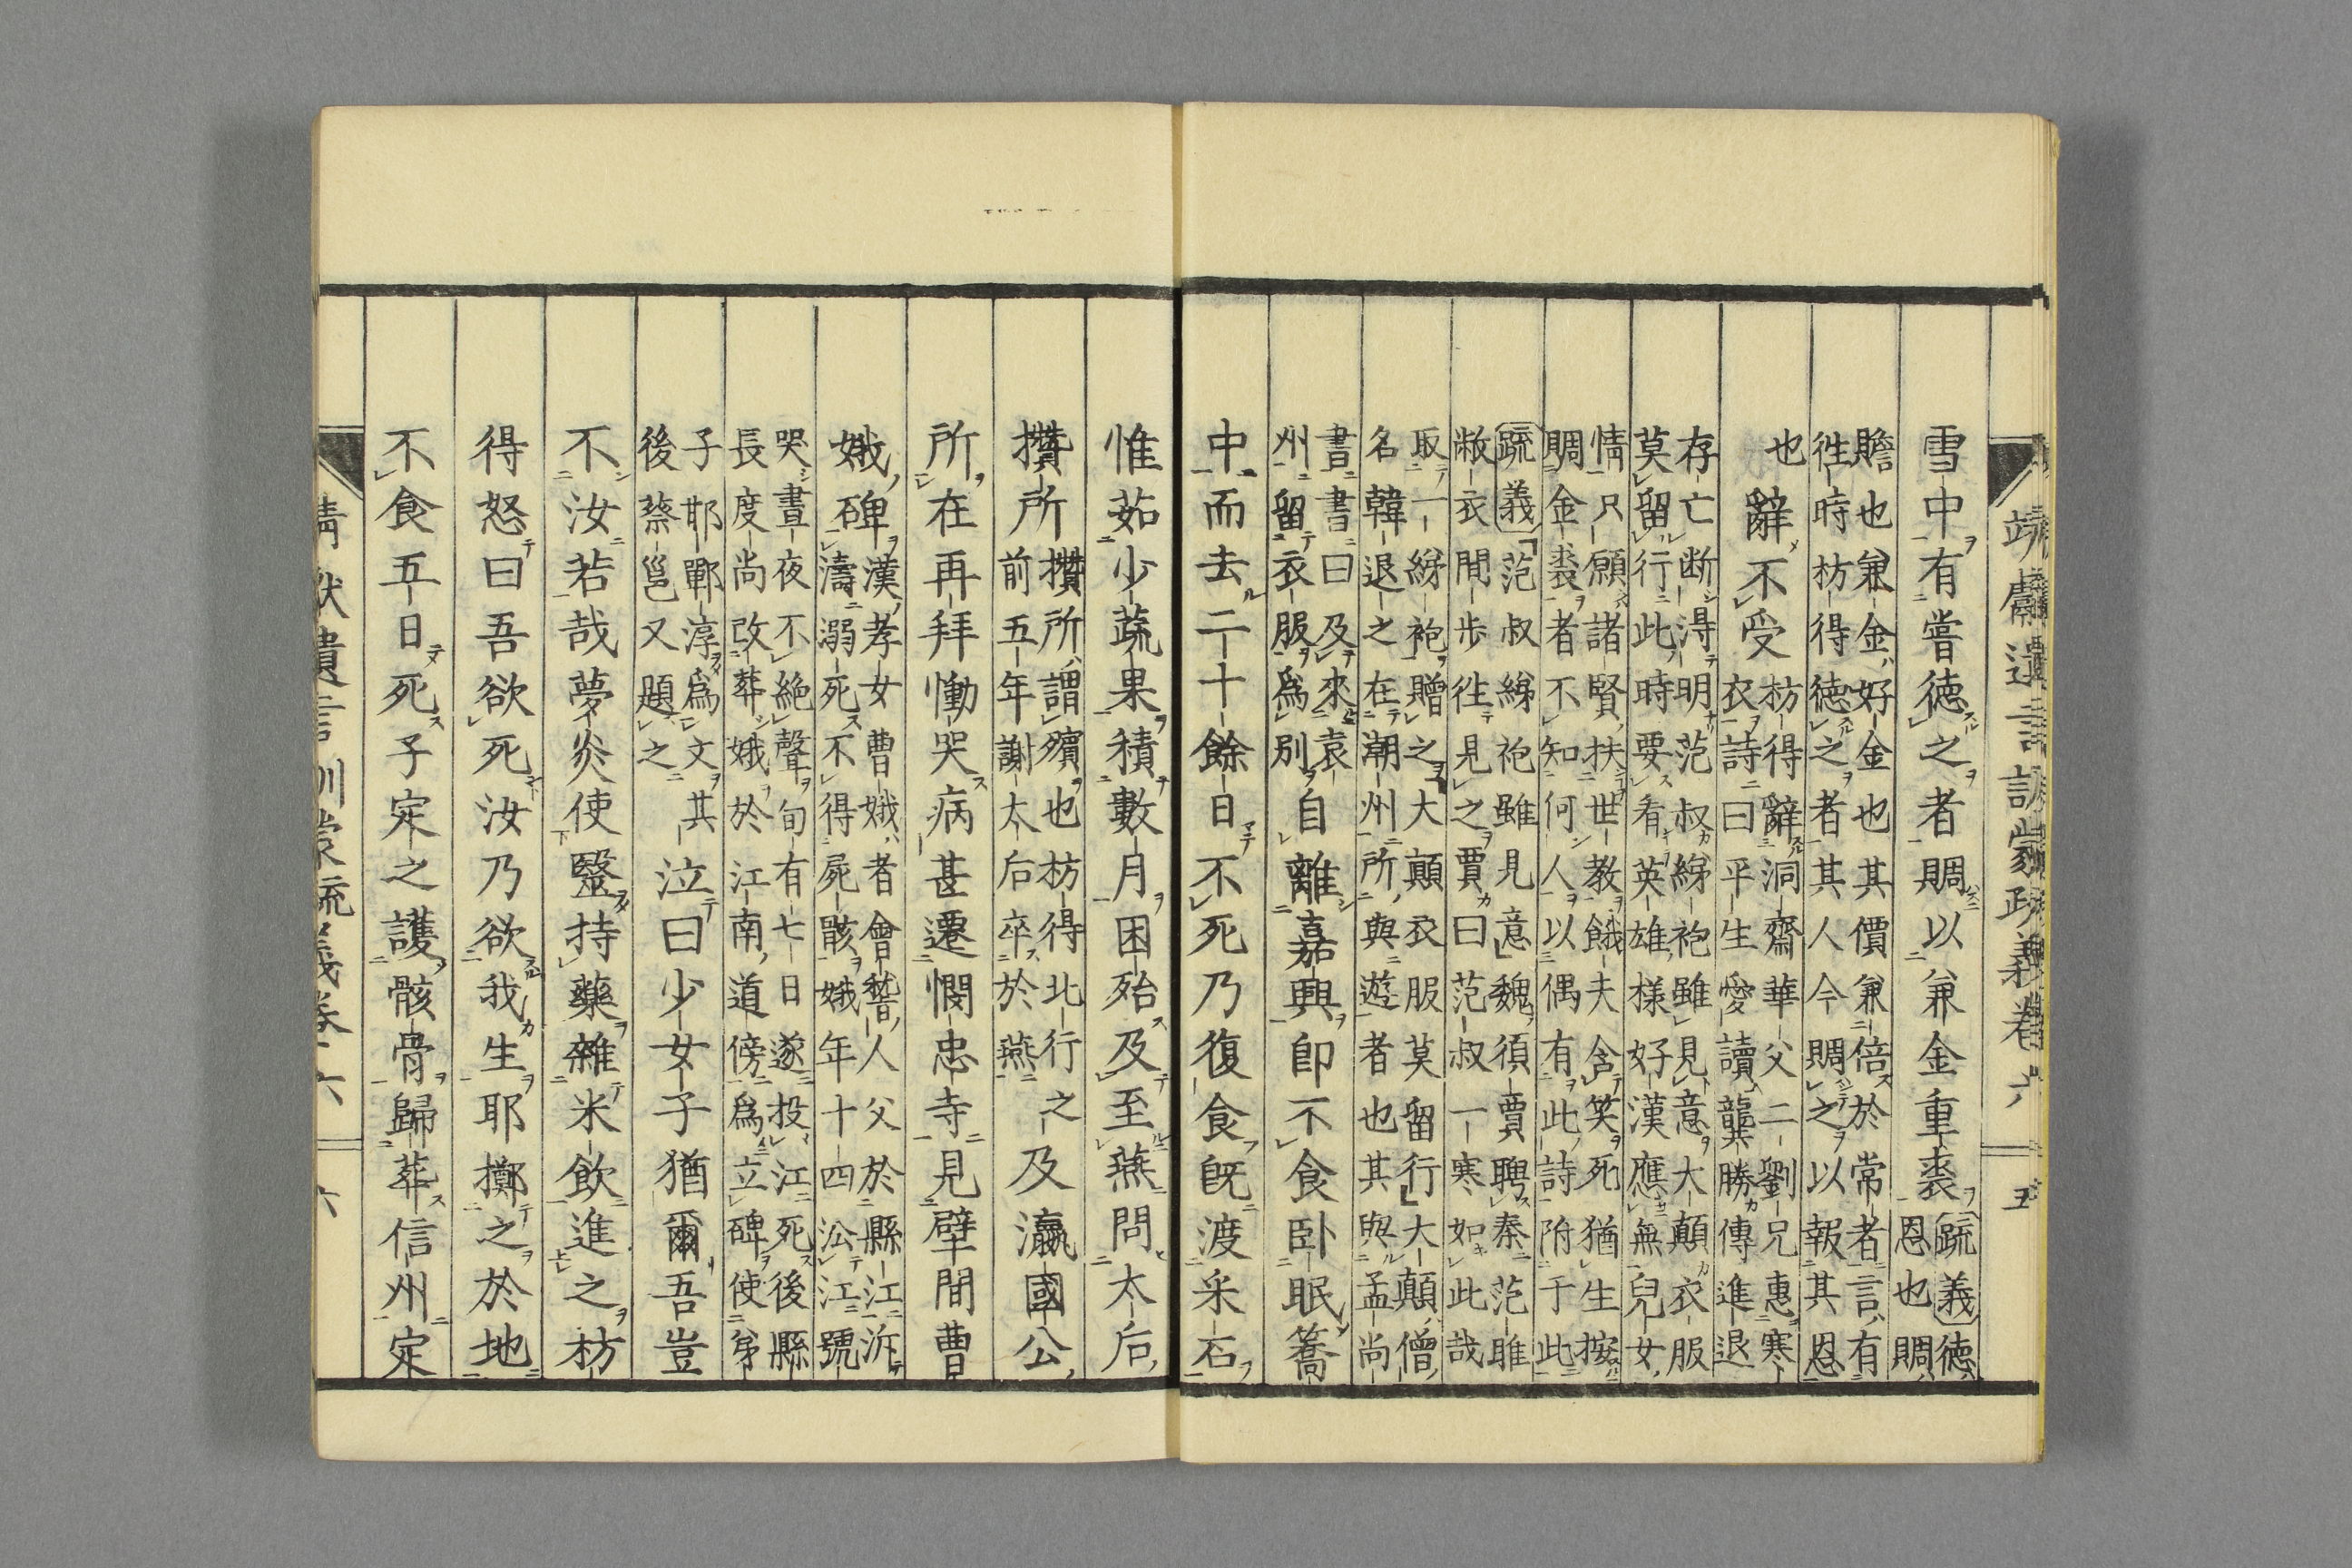 靖獻遺言訓蒙疏義卷六 五
雪中有嘗德之者賙以兼金重裘〔疏義〕德、
恩也賙、
贍也兼金、好金也其價兼倍於常者言、有
徃時枋得德之者其人今賙之以報其恩
也
辭不受
枋得辭洞齋華父二劉兄惠寒
衣詩曰平生愛讀龔勝傳進退
存亡断得明范叔綈袍雖見意大顛衣服
莫留行此時要看英雄樣好漢應無兒女
情只願諸賢扶世教餓夫含笑死猶生按
賙金裘者不知何人以偶有此詩附于此
〔疏義〕范叔綈袍雖見意魏須賈聘秦范雎
敝衣間步徃見之賈曰范叔一寒如此哉
取一綈袍贈之大顛衣服莫留行大顛、僧、
名韓退之在潮州所與遊者也其與孟尚
書書曰及來袁
州留衣服爲別
自離嘉興即不食卧眠簥
中而去二十餘日不死乃復食既渡采石
惟茹少蔬果積數月困殆及至燕問太后、
攢所
攢所、謂殯也枋得北行之
前五年謝太后卒於燕
及瀛國公、
所、在再拜慟哭病甚遷憫忠寺見壁間曹
娥、碑
漢、孝女曹娥、者會稽、人父於縣江泝
濤溺死不得屍骸娥年十四㳂江號
哭晝夜不絶聲旬有七日遂投江死後縣
長度尚改葬娥於江南、道傍爲立碑使弟
子邯鄲淳爲文其
後蔡邕又題之
泣曰少女子猶爾、吾豈
不汝若哉夢炎使毉持藥雜米飲進之枋
得怒曰吾欲死汝乃欲我生耶擲之於地
不食五日死子定之護骸骨歸葬信州定
靖獻遺言訓蒙疏義卷六 六